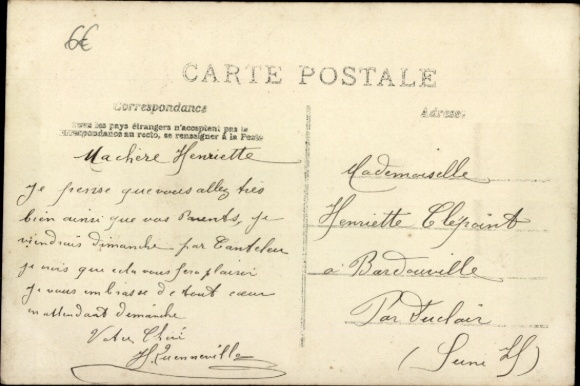 6€
CARTE POSTALE
Correspondance
Tous les pays étrangers n'acceptent pas la
correspondance au recto, se renseigner à la Poste
Ma chère Henriette
Je pense que vous allez très
bien ainsi que vos Parents, je
viendrais dimanche par Canteleu
je crois que cela vous fera plaisir
Je vous embrasse de tout cœur
en attendant dimanche
Votre Chéri
H. Quenneville
Adresse
Mademoiselle
Henriette Clépoint
à Bardouville
Par Duclair
(Seine If)